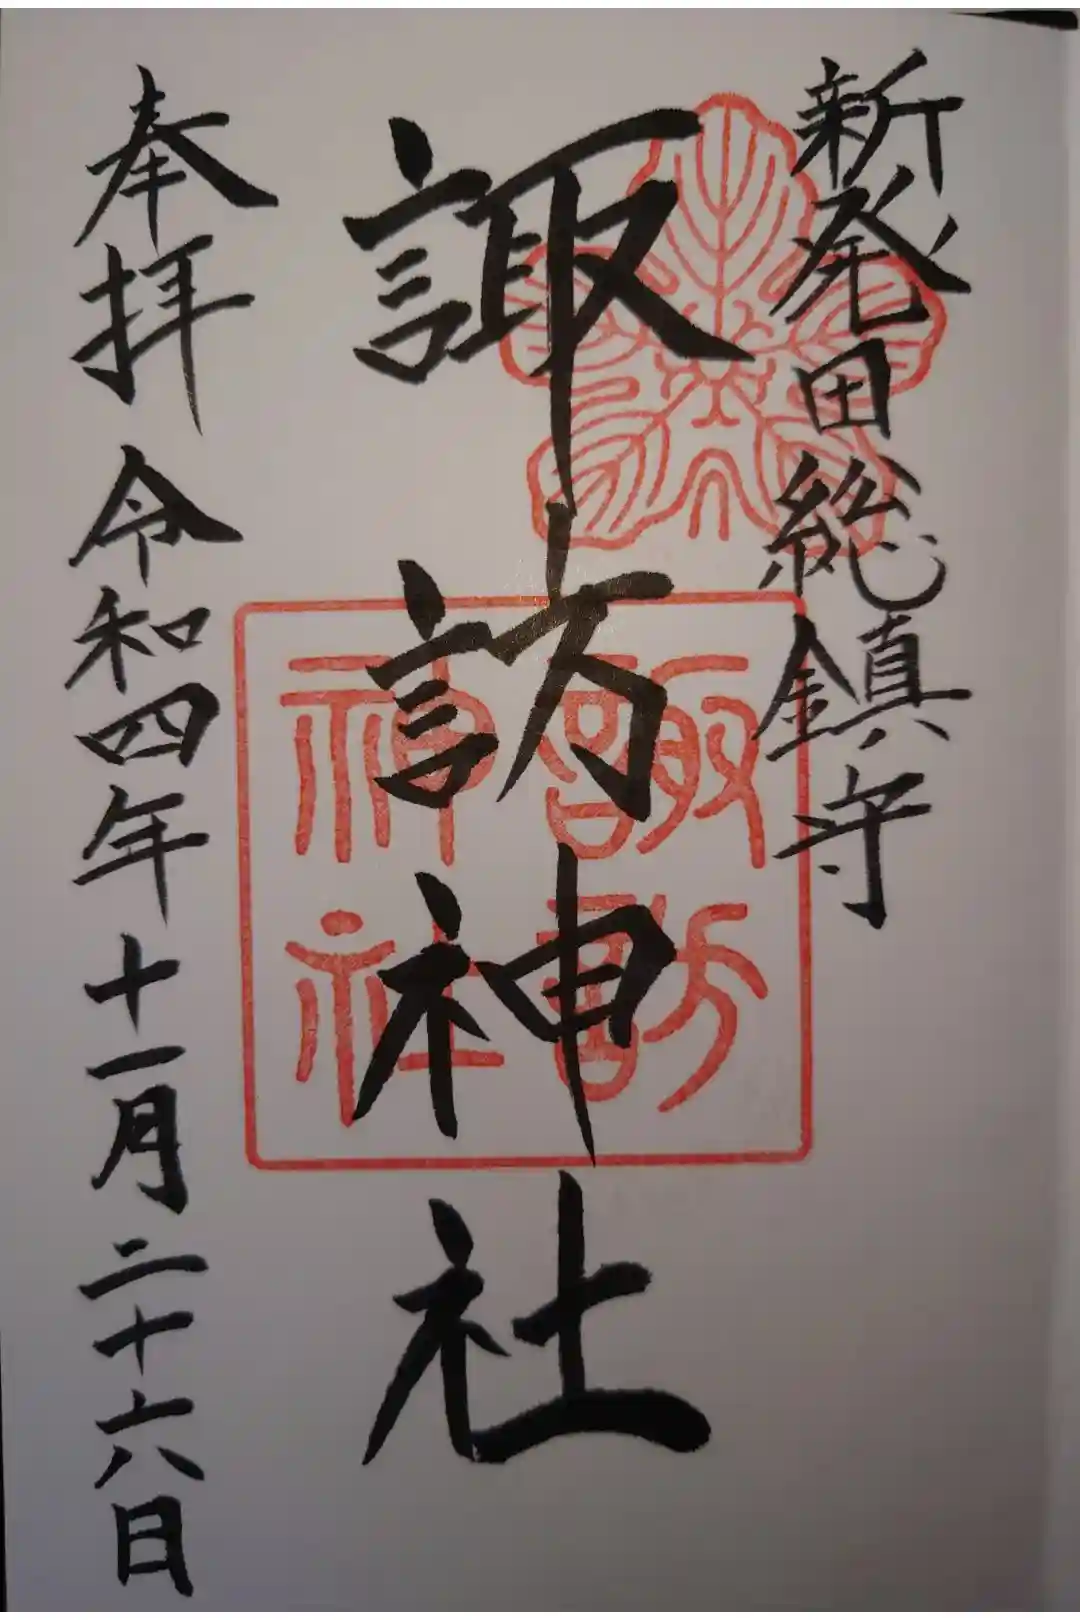 新発田総鎮守
諏訪神社
諏訪
神社
奉拝 令和四年十一月二十六日